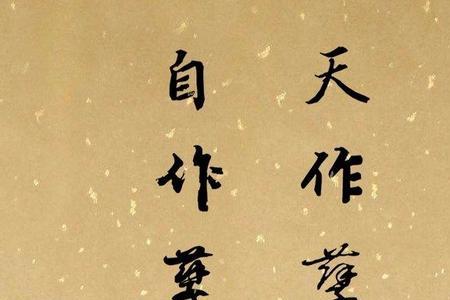 天作孽
自作孽